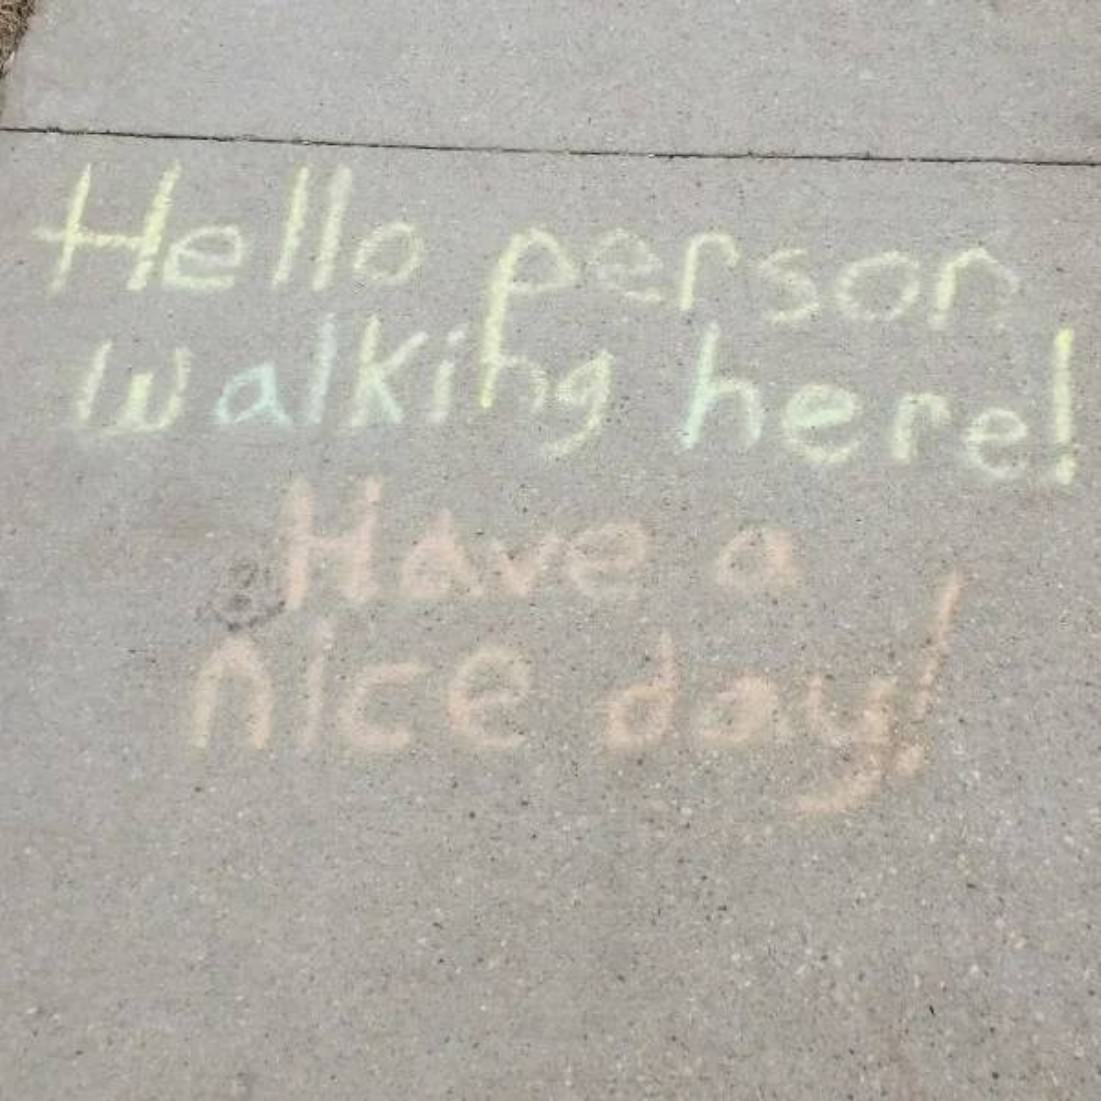 Hello person
walking here!
Have a
nice day!